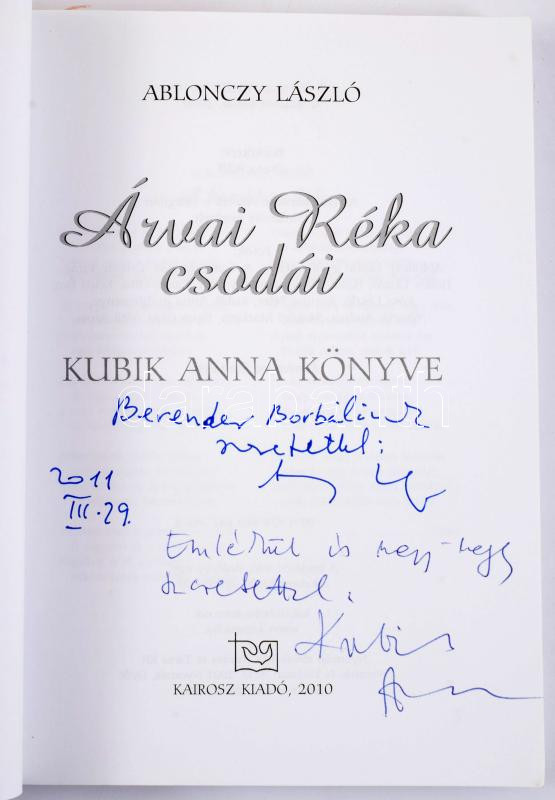 ABLONCZY LÁSZLÓ
Árvai Réka
csodái
KUBIK ANNA KÖNYVE
darabanth
Berender Borbálának
szeretettel:
2011
III. 29.
Emlékül és nagy-nagy
szeretettel:
Kubik
Anna
KAIROSZ KIADÓ, 2010